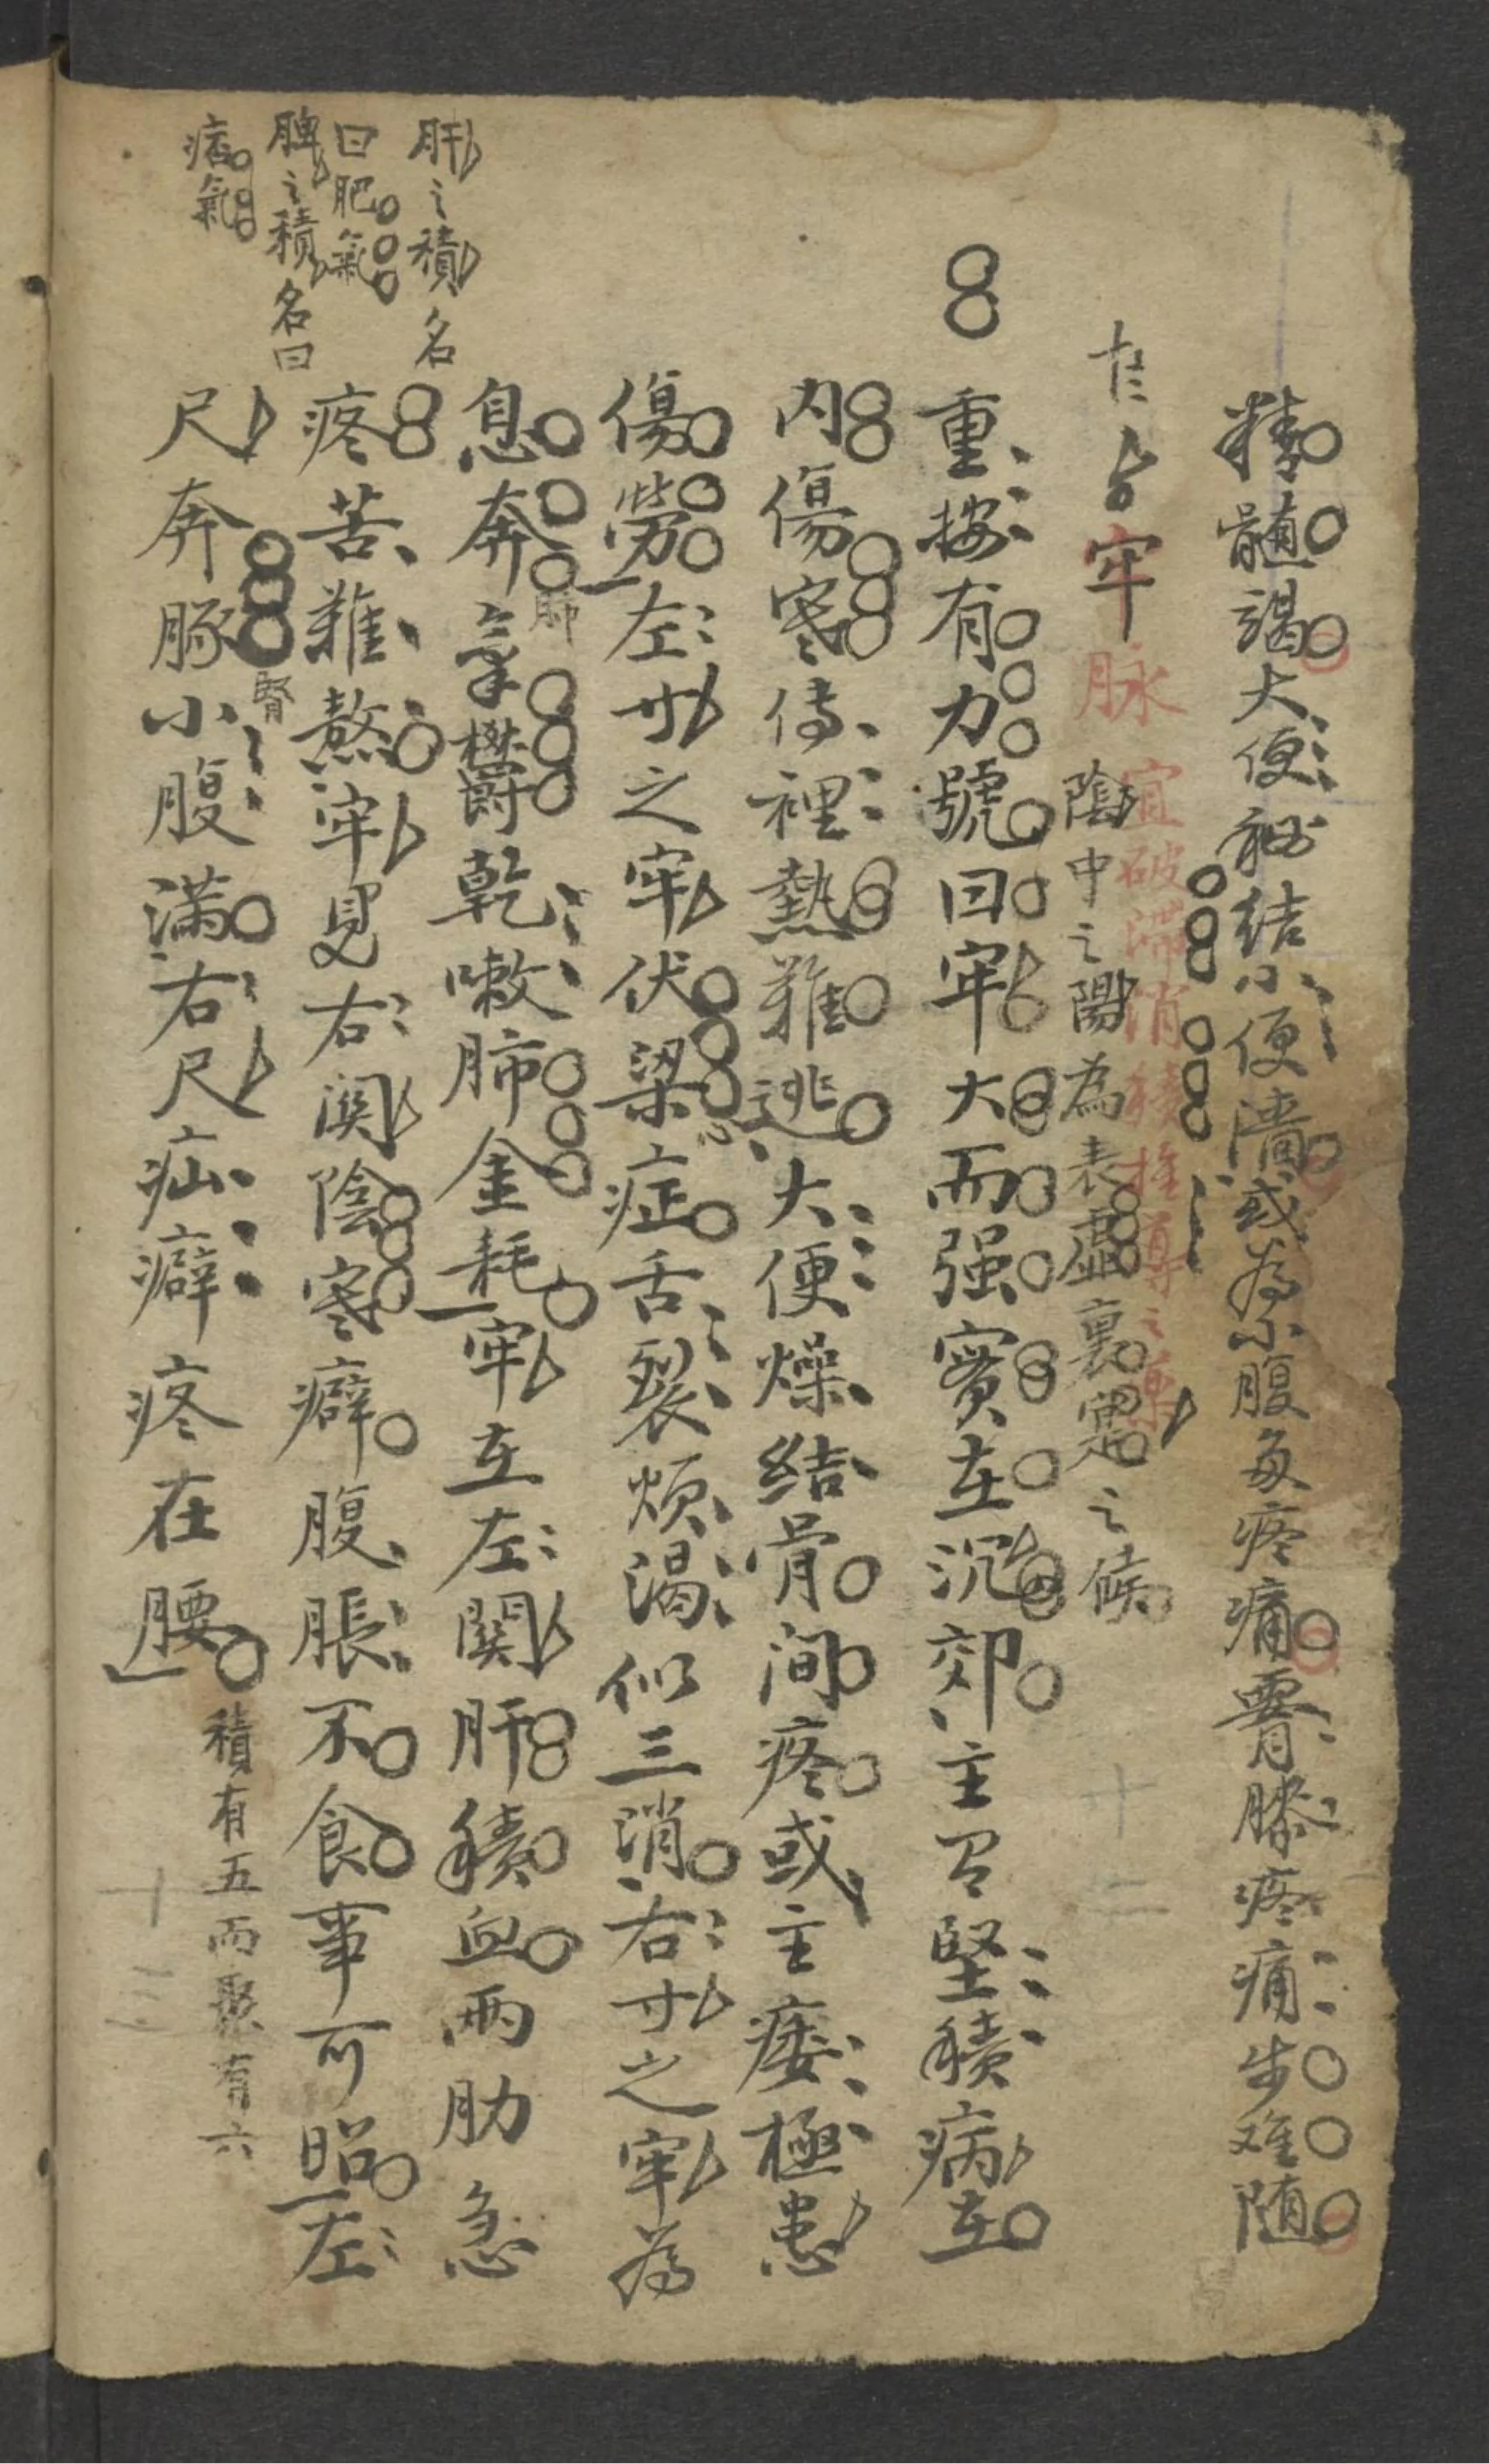 精髓竭大便秘結小便濇或為小腹多疼痛腎膝疼痛步难随
牢脉 宜破滯消積推導之藥
陰中之陽為表虛裏寔之候
重按有力號曰牢大而强實在沉郊主召堅積病在
内傷寒傳裡熱難逃大便燥结骨间疼或主痿極患
傷勞左寸之牢伏梁症舌裂烦渴似三消右寸之牢為
心
息奔氣欝乾嗽肺金耗牢在左關肝積血兩肋急
肺
疼苦難熬牢見右関陰寒癖腹脹不食事可昭左
尺奔豚小腹满右尺疝癖疼在腰
腎
積有五而聚有六
肝之積名
曰肥氣
脾之積名曰
痞氣
十二
十三